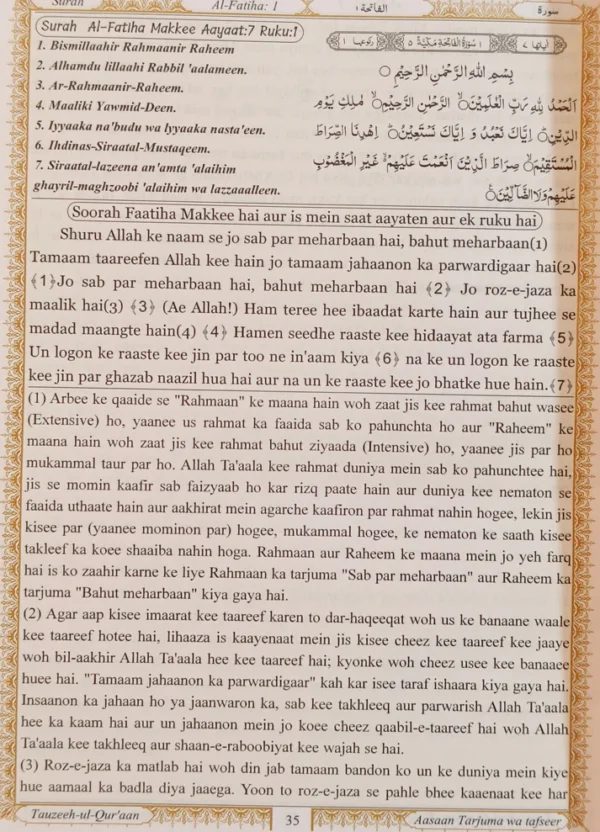 Surah
Al-Fatiha: 1
الفاتحة ١
سورة
Surah Al-Fatiha Makkee Aayaat:7 Ruku:1
1. Bismillaahir Rahmaanir Raheem
2. Alhamdu lillaahi Rabbil 'aalameen.
3. Ar-Rahmaanir-Raheem.
4. Maaliki Yawmid-Deen.
5. Iyyaaka na'budu wa Iyyaaka nasta'een.
6. Ihdinas-Siraatal-Mustaqeem.
7. Siraatal-lazeena an'amta 'alaihim
ghayril-maghzoobi 'alaihim wa lazzaaalleen.
اٰیاتہا ٧ ١ سُوْرَةُ الْفَاتِحَةِ مَكِّيَّةٌ ٥ رکوعہا ١
بِسْمِ اللهِ الرَّحْمٰنِ الرَّحِيْمِ
اَلْحَمْدُ لِلّٰهِ رَبِّ الْعٰلَمِيْنَ الرَّحْمٰنِ الرَّحِيْمِ مٰلِكِ يَوْمِ
الدِّيْنِ اِيَّاكَ نَعْبُدُ وَ اِيَّاكَ نَسْتَعِيْنُ اِهْدِنَا الصِّرَاطَ
الْمُسْتَقِيْمَ صِرَاطَ الَّذِيْنَ اَنْعَمْتَ عَلَيْهِمْ غَيْرِ الْمَغْضُوْبِ
عَلَيْهِمْ وَلَا الضَّآلِّيْنَ
Soorah Faatiha Makkee hai aur is mein saat aayaten aur ek ruku hai
Shuru Allah ke naam se jo sab par meharbaan hai, bahut meharbaan(1)
Tamaam taareefen Allah kee hain jo tamaam jahaanon ka parwardigaar hai(2)
﴾1﴿Jo sab par meharbaan hai, bahut meharbaan hai ﴾2﴿ Jo roz-e-jaza ka
maalik hai(3) ﴾3﴿ (Ae Allah!) Ham teree hee ibaadat karte hain aur tujhee se
madad maangte hain(4) ﴾4﴿ Hamen seedhe raaste kee hidaayat ata farma ﴾5﴿
Un logon ke raaste kee jin par too ne in'aam kiya ﴾6﴿ na ke un logon ke raaste
kee jin par ghazab naazil hua hai aur na un ke raaste kee jo bhatke hue hain.﴾7﴿
(1) Arbee ke qaaide se "Rahmaan" ke maana hain woh zaat jis kee rahmat bahut wasee
(Extensive) ho, yaanee us rahmat ka faaida sab ko pahunchta ho aur "Raheem" ke
maana hain woh zaat jis kee rahmat bahut ziyaada (Intensive) ho, yaanee jis par ho
mukammal taur par ho. Allah Ta'aala kee rahmat duniya mein sab ko pahunchtee hai,
jis se momin kaafir sab faizyaab ho kar rizq paate hain aur duniya kee nematon se
faaida uthaate hain aur aakhirat mein agarche kaafiron par rahmat nahin hogee, lekin jis
kisee par (yaanee mominon par) hogee, mukammal hogee, ke nematon ke saath kisee
takleef ka koee shaaiba nahin hoga. Rahmaan aur Raheem ke maana mein jo yeh farq
hai is ko zaahir karne ke liye Rahmaan ka tarjuma "Sab par meharbaan" aur Raheem ka
tarjuma "Bahut meharbaan" kiya gaya hai.
(2) Agar aap kisee imaarat kee taareef karen to dar-haqeeqat woh us ke banaane waale
kee taareef hotee hai, lihaaza is kaayenaat mein jis kisee cheez kee taareef kee jaaye
woh bil-aakhir Allah Ta'aala hee kee taareef hai; kyonke woh cheez usee kee banaaee
huee hai. "Tamaam jahaanon ka parwardigaar" kah kar isee taraf ishaara kiya gaya hai.
Insaanon ka jahaan ho ya jaanwaron ka, sab kee takhleeq aur parwarish Allah Ta'aala
hee ka kaam hai aur un jahaanon mein jo koee cheez qaabil-e-taareef hai woh Allah
Ta'aala kee takhleeq aur shaan-e-raboobiyat kee wajah se hai.
(3) Roz-e-jaza ka matlab hai woh din jab tamaam bandon ko un ke duniya mein kiye
hue aamaal ka badla diya jaaega. Yoon to roz-e-jaza se pahle bhee kaaenaat kee har
Tauzeeh-ul-Qur'aan
35
Aasaan Tarjuma wa tafseer